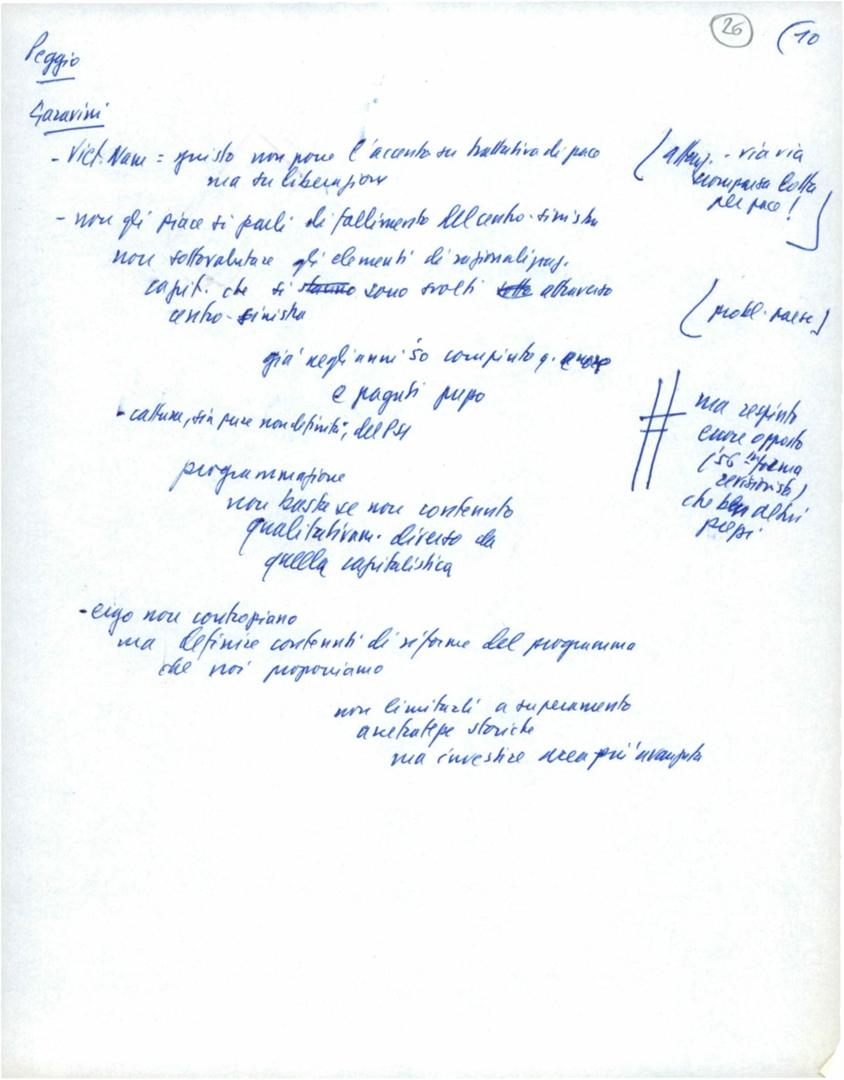 26 (10
Peggio
Garavini
- Viet Nam = giusto non porre l'accento su trattativa di pace
ma su liberazione
(attenz. - via via
scomparsa lotta
per pace!)
- non gli piace si parli di fallimento del centro-sinistra
non sottovalutare gli elementi di razionalizzaz.
capit. che si stanno sono svolti sotto attraverso
centro-sinistra
(probl. paese)
già negli anni '50 compiuto q. errore
e pagati
- catture, sia pure non definita, del PSI
ma respinto
errore opposto
('56 in forma
revisionista)
che ben altri
programmazione
non basta se non contenuto
qualitativam. diverso da
quella capitalistica
- ergo non contropiano
ma definire contenuti di riforme del programma
che noi proponiamo
non limitarli a superamento
arretratezze storiche
ma investire area più avanzata